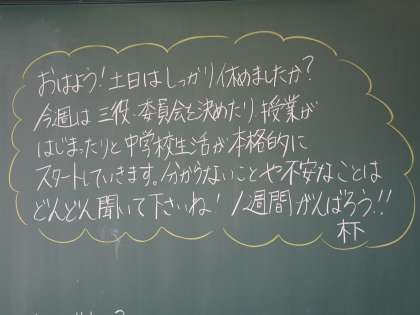 おはよう!土日はしっかり休めましたか?
今週は三役・委員会を決めたり、授業が
はじまったりと中学校生活が本格的に
スタートしていきます。分からないことや不安なことは
どんどん聞いて下さいね!1週間がんばろう!!